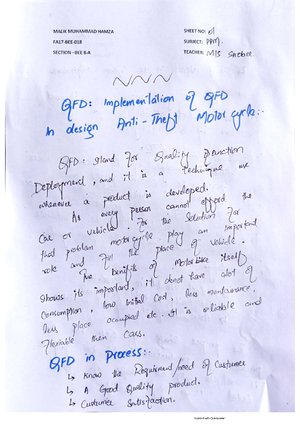 MALIK MUHAMMAD HAMZA
FA17-BEE-018
SECTION -BEE 8-A
SHEET NO: 01
SUBJECT: PPM
TEACHER: Mis
QFD: Implementation of QFD
in design Anti-Theft Motor cycle:-
QFD: stand for Quality Function
Deployment, and it is a technique use
whenever a product is developed.
As every person cannot afford the
Car or vehicle. For the solution for
that problem motorcycle play an important
role and fill the place of vehicle.
The benefits of Motorbike itself
shows its important, it donot have alot of
Consumption, low initial Cost, less maintanance,
less place occupied etc. It is reliable and
flexiable then Cars.
QFD in Process:-
↳ Know the Requirment/need of Customer
↳ A Good Quality product.
↳ Customer Satisfaction.